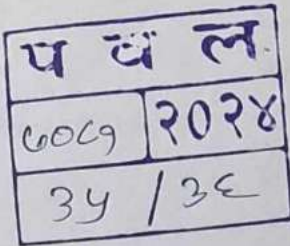 प व ल
७०८१ २०२४
३५ / ३६